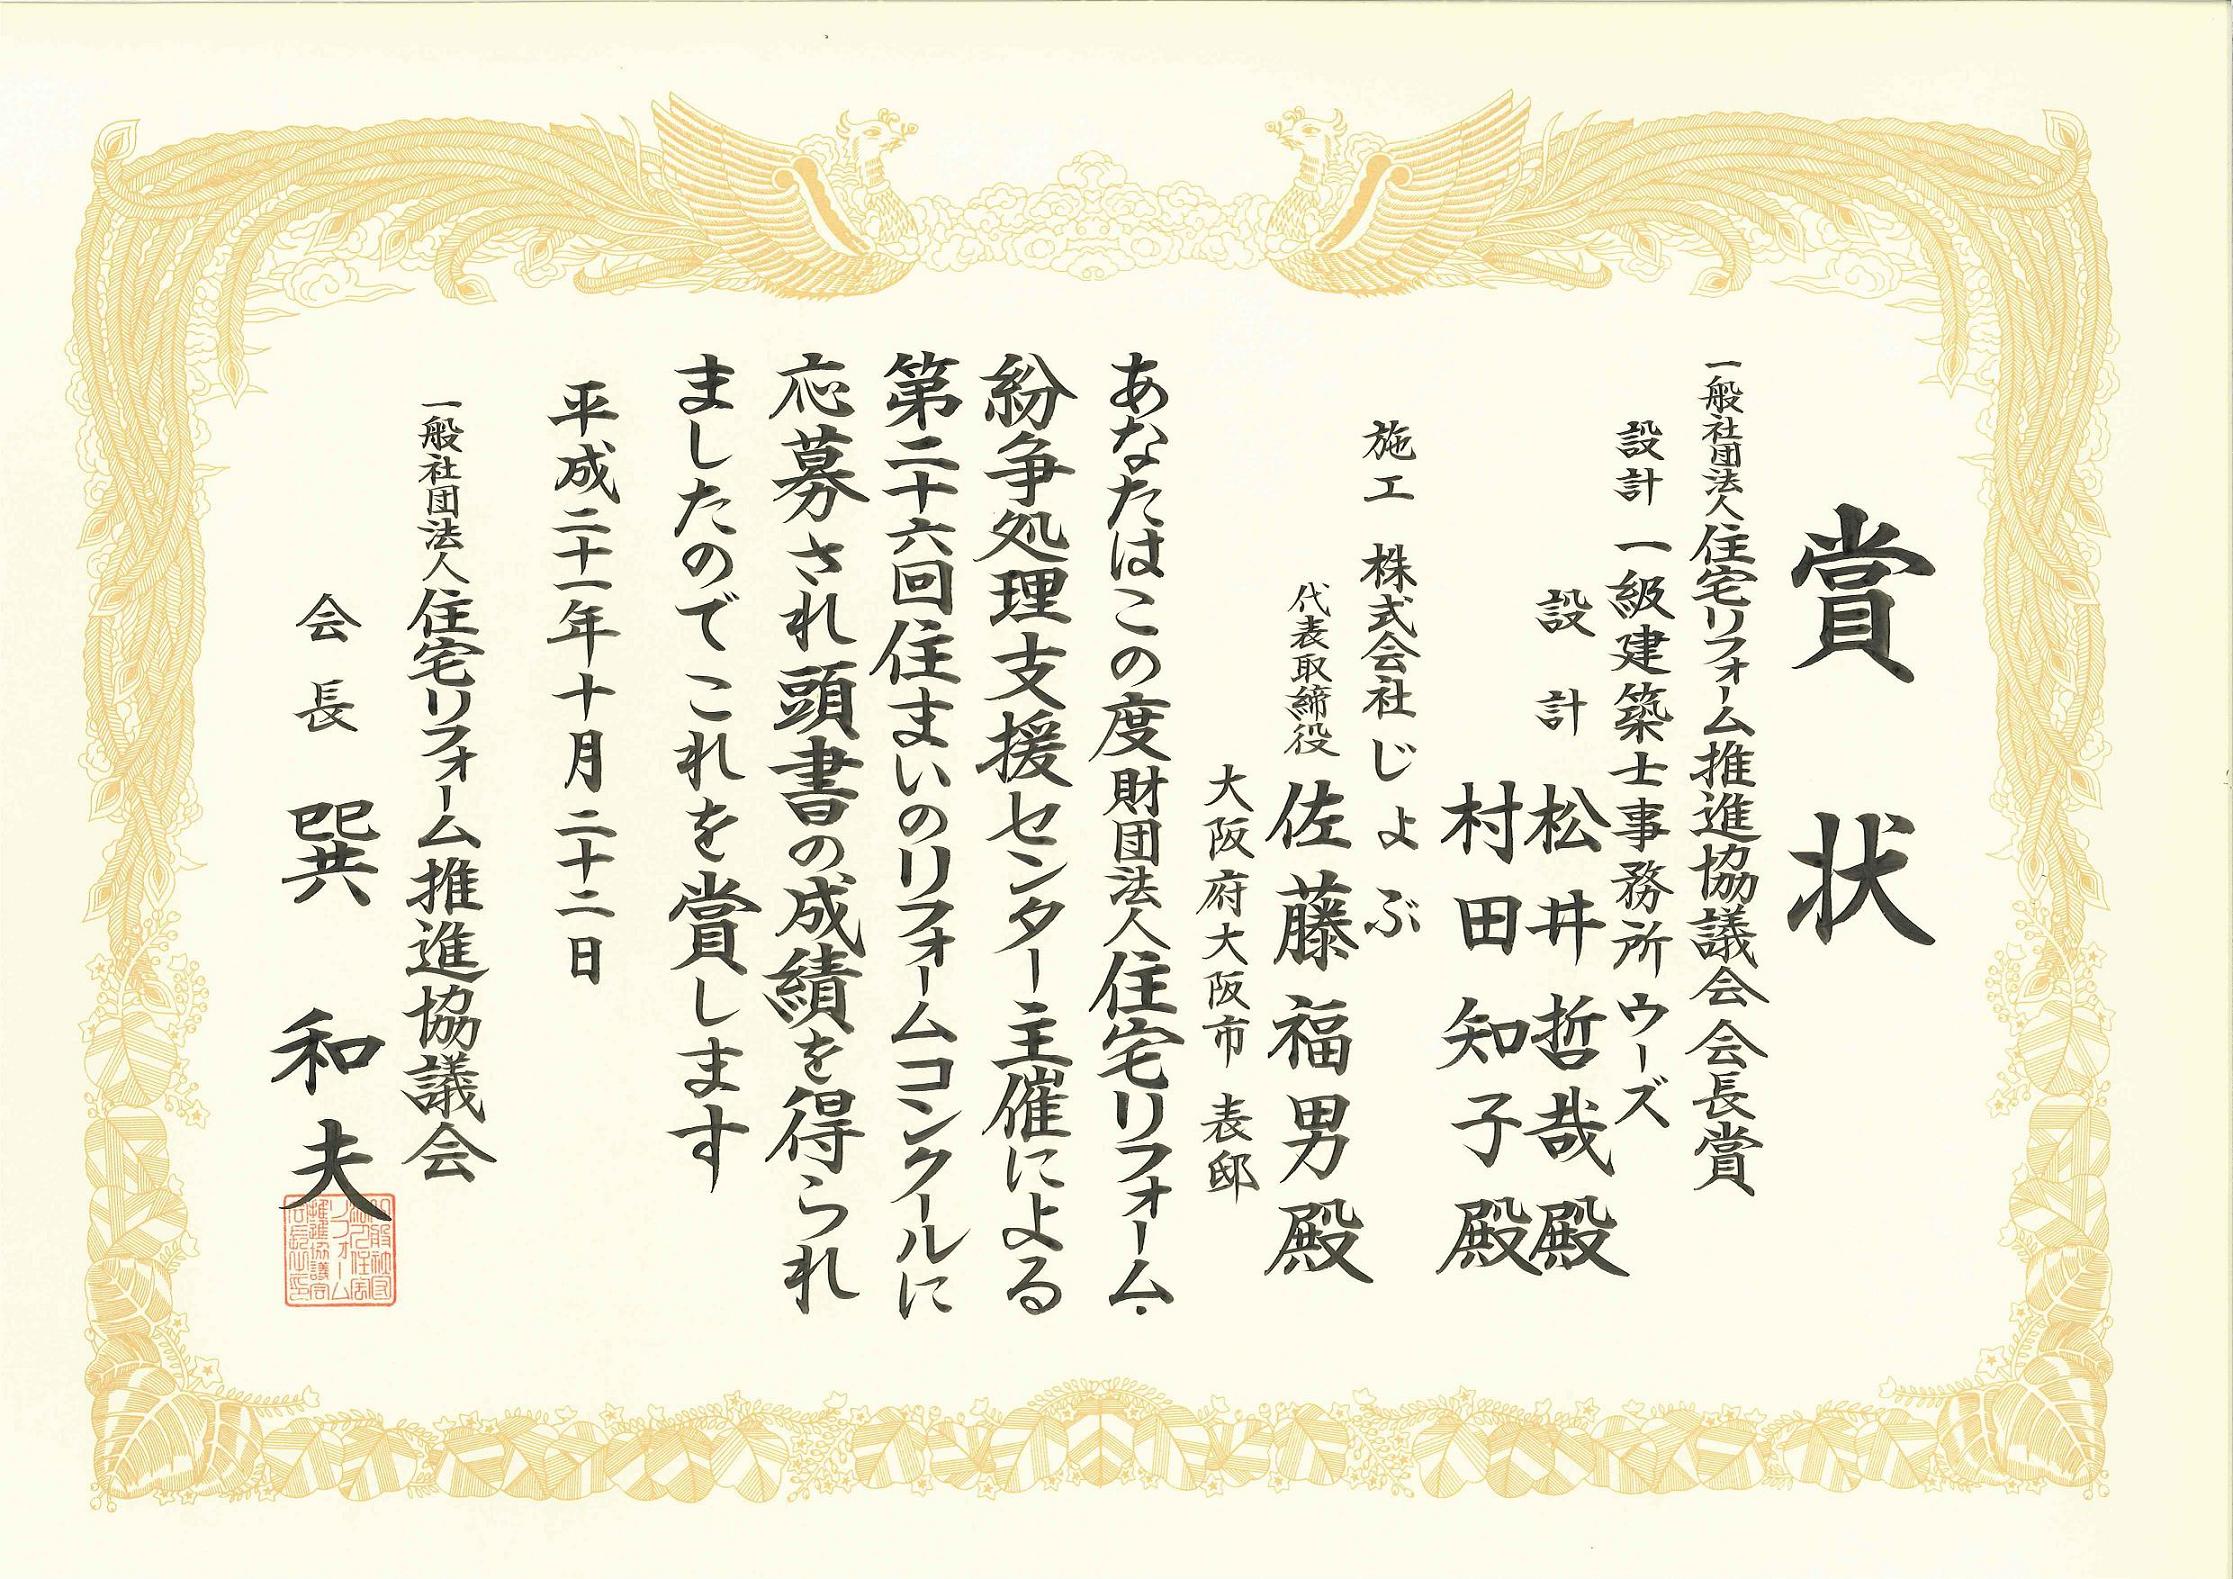 賞状
一般社団法人住宅リフォーム推進協議会会長賞
設計 一級建築士事務所ウーズ
設計 松井哲哉殿
村田知子殿
施工 株式会社じょぶ
代表取締役 佐藤福男殿
大阪府大阪市 表邸
あなたはこの度財団法人住宅リフォーム・
紛争処理支援センター主催による
第二十六回住まいのリフォームコンクールに
応募され頭書の成績を得られ
ましたのでこれを賞します
平成二十一年十月二十二日
一般社団法人住宅リフォーム推進協議会
会長 巽和夫